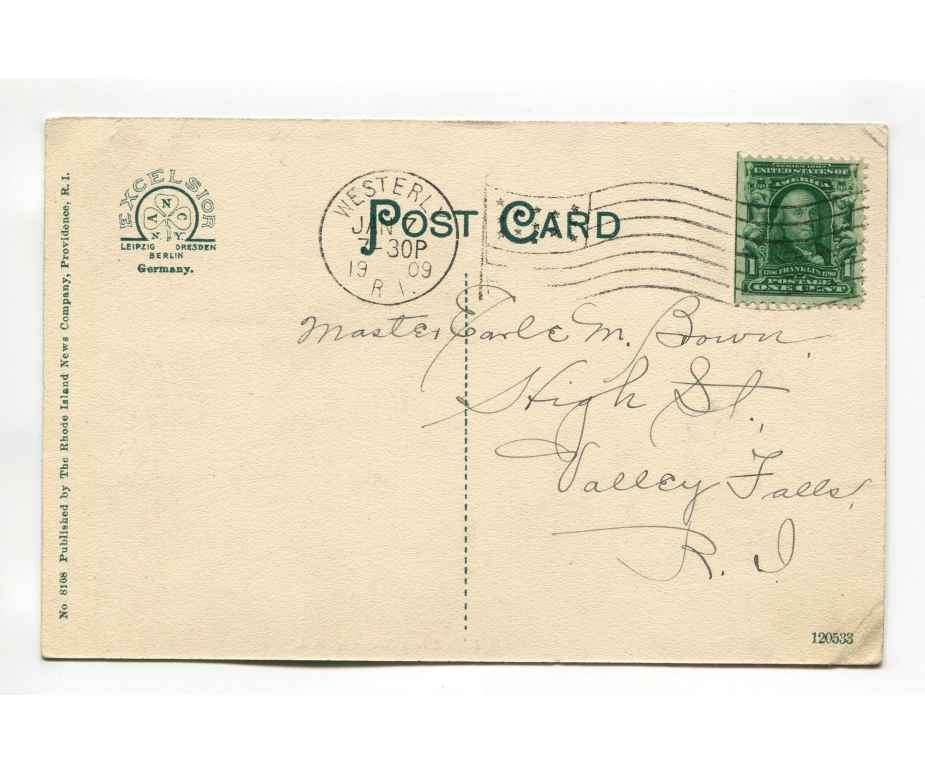 No 8108 Published by The Rhode Island News Company, Providence, R. I.
EXCELSIOR
A N C
N.Y.
LEIPZIG DRESDEN
BERLIN
Germany.
WESTERLY
JAN 7
7-30P
19 09
R.I.
POST CARD
SERIES 1902
UNITED STATES OF
AMERICA
1706 FRANKLIN 1790
1 POSTAGE 1
ONE CENT
Master Earle M. Brown,
High St.,
Valley Falls,
R. I.
120533